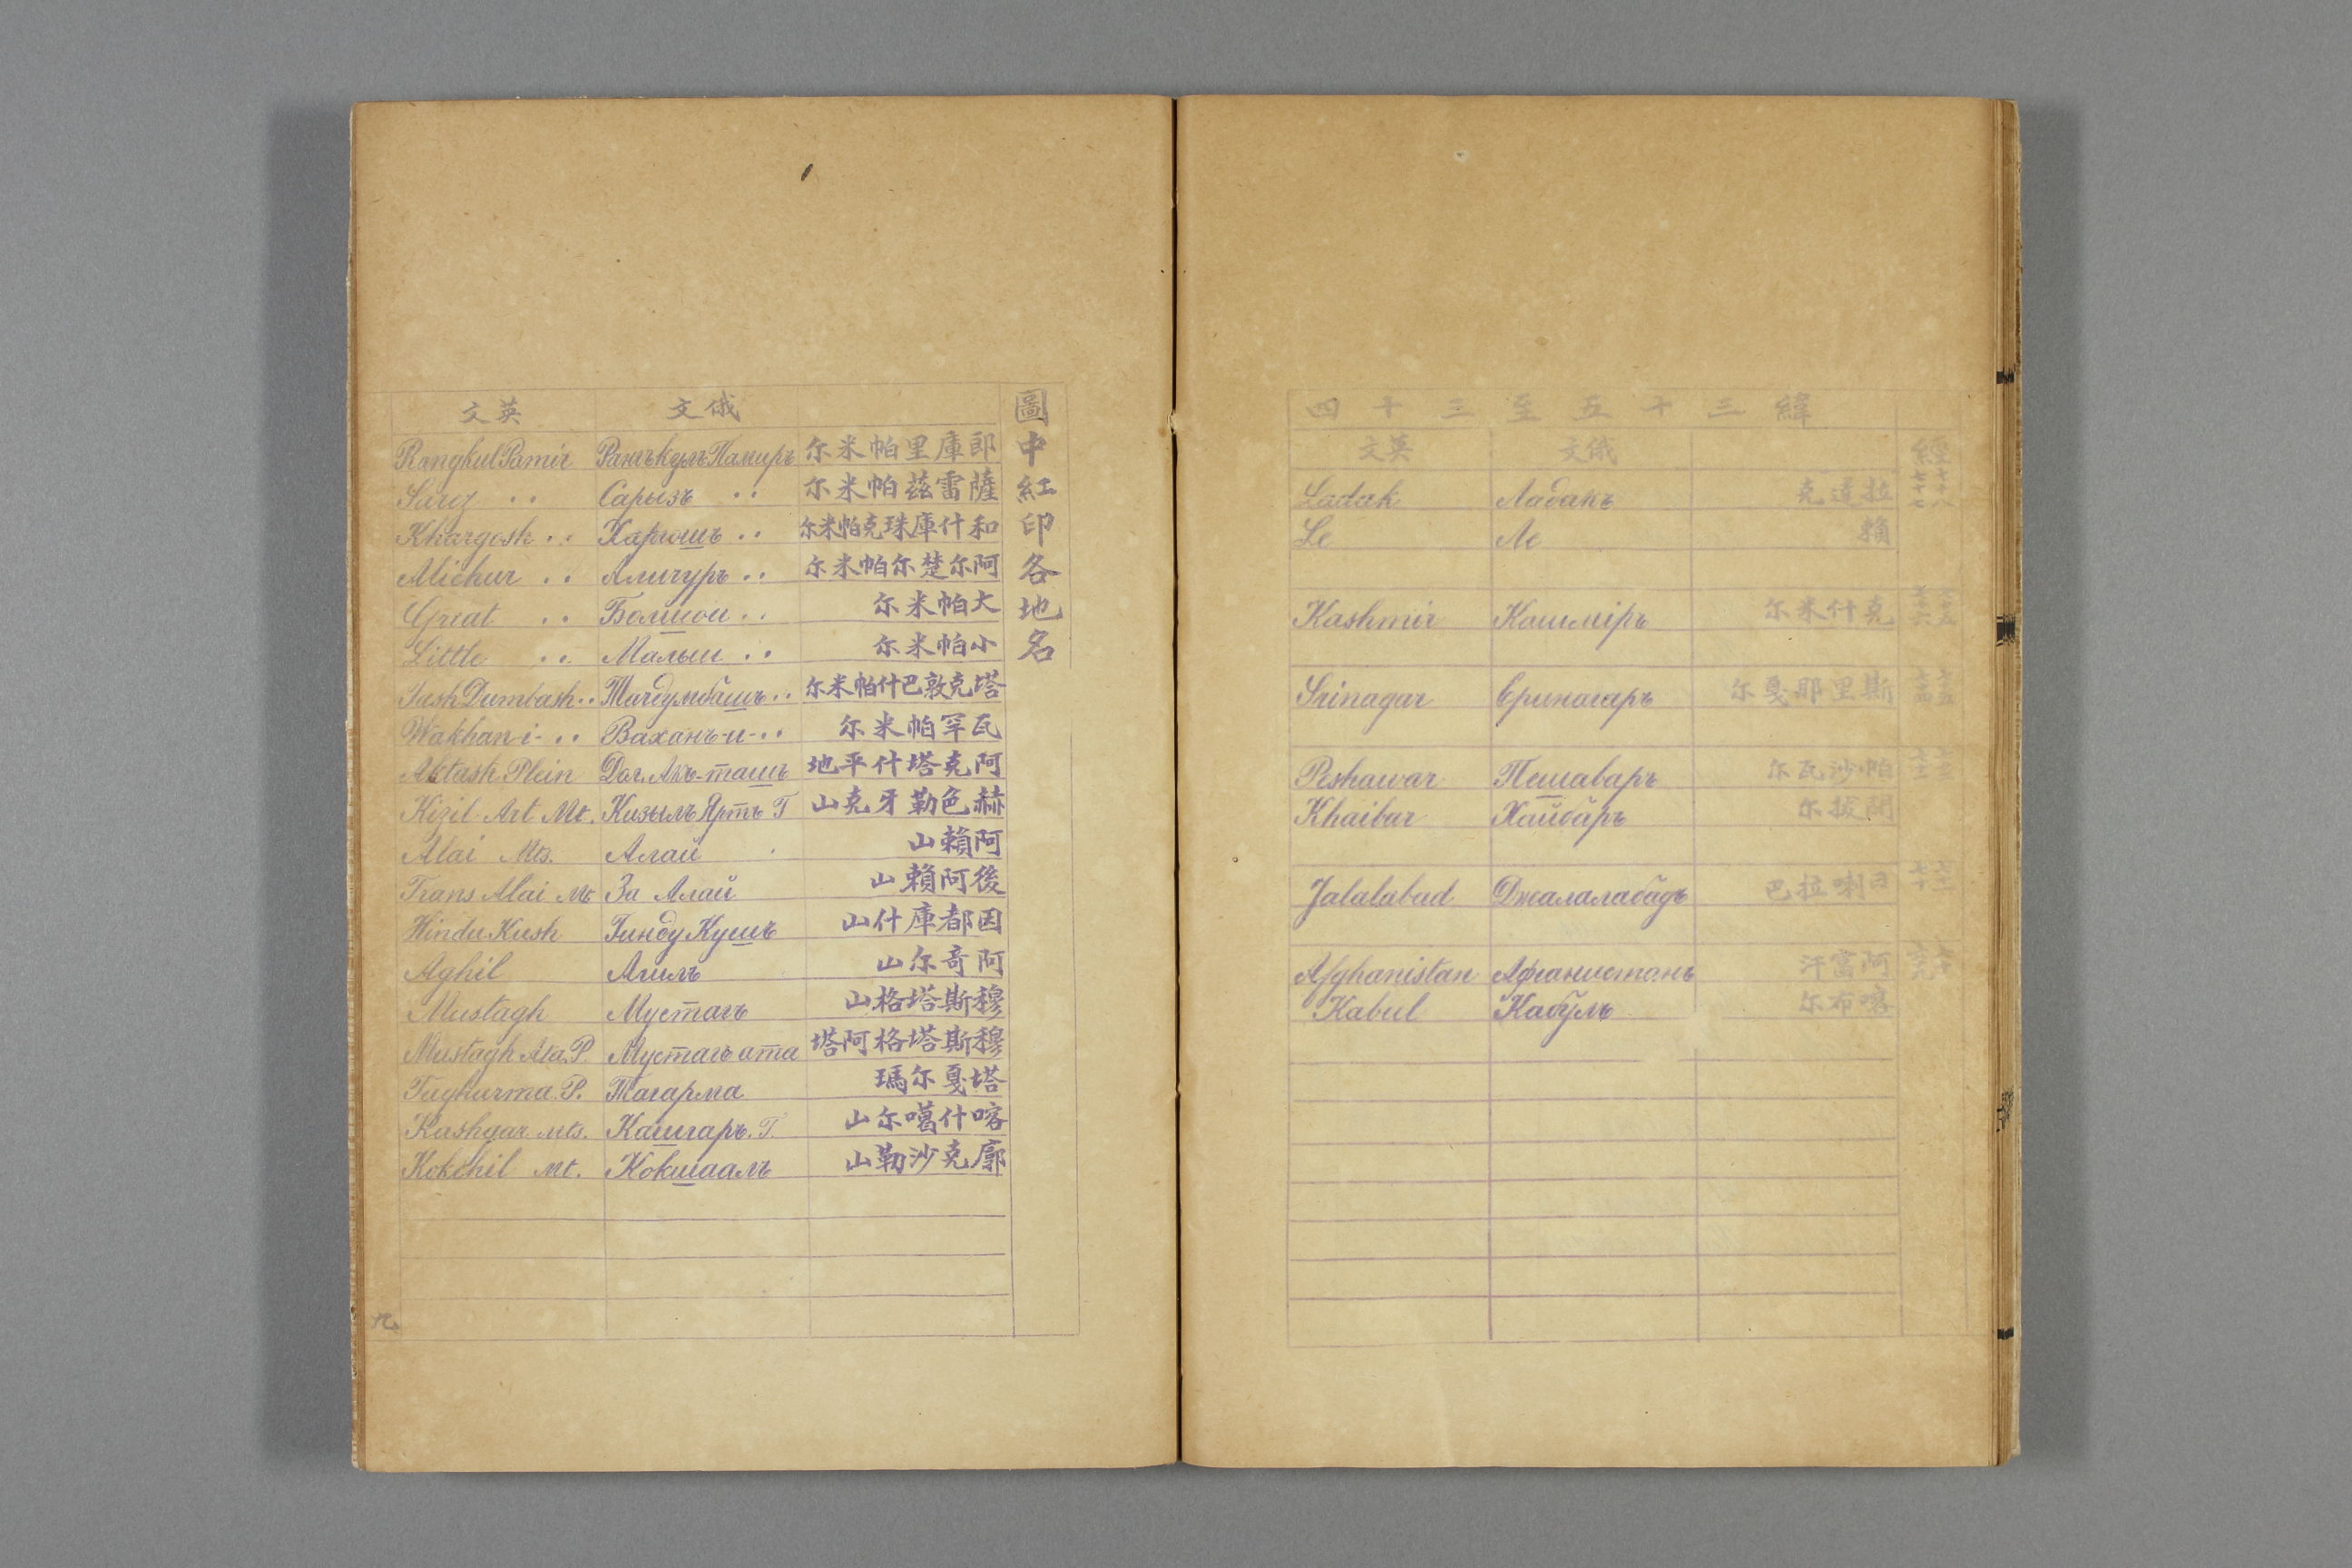 緯三十五至三十四
經 俄文 英文
七十八 七十七 拉達克 Ладакъ Ladak
賴 Ле Le
克什米尔 Кашміръ Kashmir
斯里那戛尔 Сринагаръ Srinagar
帕沙瓦尔 Пешаваръ Peshawar
開拔尔 Хайбаръ Khaibar
拉巴 Джалалабадъ Jalalabad
阿富汗 Афганистанъ Afghanistan
喀布尔 Кабулъ Kabul
圖中紅印各地名
俄文 英文
郎庫里帕米尔 Рангъкулъ Памиръ Rangkul Pamir
薩雷茲帕米尔 Сарызъ ․․ Sarez ․․
和什庫珠克帕米尔 Харгошъ ․․ Khargosh ․․
阿尔楚尔帕米尔 Аличуръ ․․ Alichur ․․
大帕米尔 Большои ․․ Great ․․
小帕米尔 Малыи ․․ Little ․․
塔克敦巴什帕米尔 Тагдумбашъ ․․ Tash Dumbash ․․
瓦罕帕米尔 Ваханъ-и- ․․ Wakhan-i- ․․
阿克塔什平地 Дол. Акъ-ташъ Aktash Plein
赫色勒牙克山 Кизылъ Яртъ Г Kizil Art Mt.
阿賴山 Алай Alai Mts.
後阿賴山 За Алай Trans Alai Mt
因都庫什山 Гинду Кушъ Hindu Kush
阿奇尔山 Агилъ Aghil
穆斯塔格山 Мустагъ Mustagh
穆斯塔格阿塔 Мустагъ ата Mustagh Ata. P.
塔戛尔瑪 Тагарма Taghurma. P.
喀什噶尔山 Кашгаръ. Г. Kashgar Mts.
廓克沙勒山 Кокшаалъ Kokchil Mt.
九